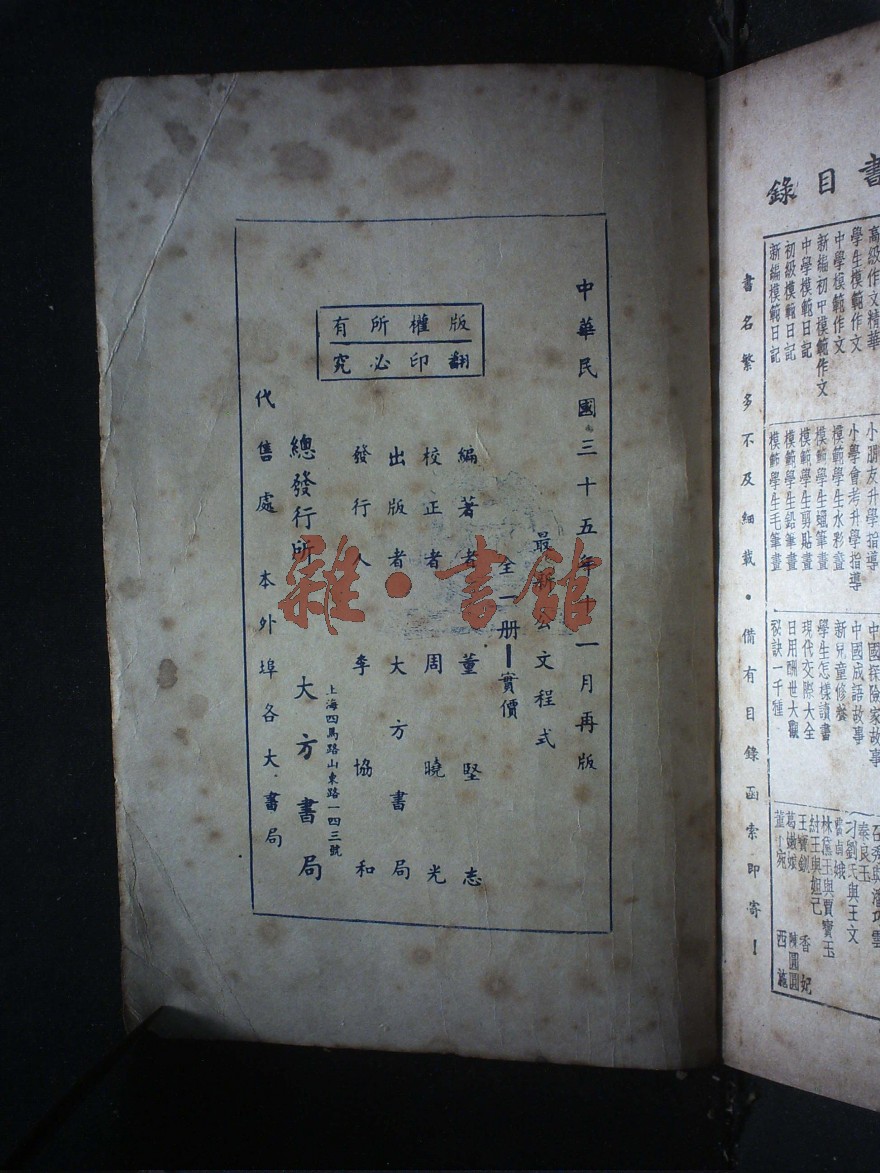 中華民國三十五年十一月再版
最新公文程式
全一册
實價
版權所有
翻印必究
編著者 董堅志
校正者 周曉光
出版者 大方書局
發行人 李協和
上海四馬路山東路一四三號
總發行所 大方書局
代售處 本外埠各大書局
雜·書館
書目錄
高級作文精華
學生模範作文
中學模範作文
新編初中模範作文
中學模範日記
初級模範日記
新編模範日記
小朋友升學指導
小學會考升學指導
模範學生水彩畫
模範學生蠟筆畫
模範學生剪貼畫
模範學生鉛筆畫
模範學生毛筆畫
中國探險家故事
中國成語故事
新兒童修養
學生怎樣讀書
現代交際大全
日用酬世大觀
秘訣一千種
石秀與潘巧雲
秦良玉
刁劉氏與王文
林黛玉與賈寶玉
紂王與妲己
王寶釧 香妃
葛嫩娘 陳圓圓
董小宛 西施
書名繁多不及細載·備有目錄函索即寄！